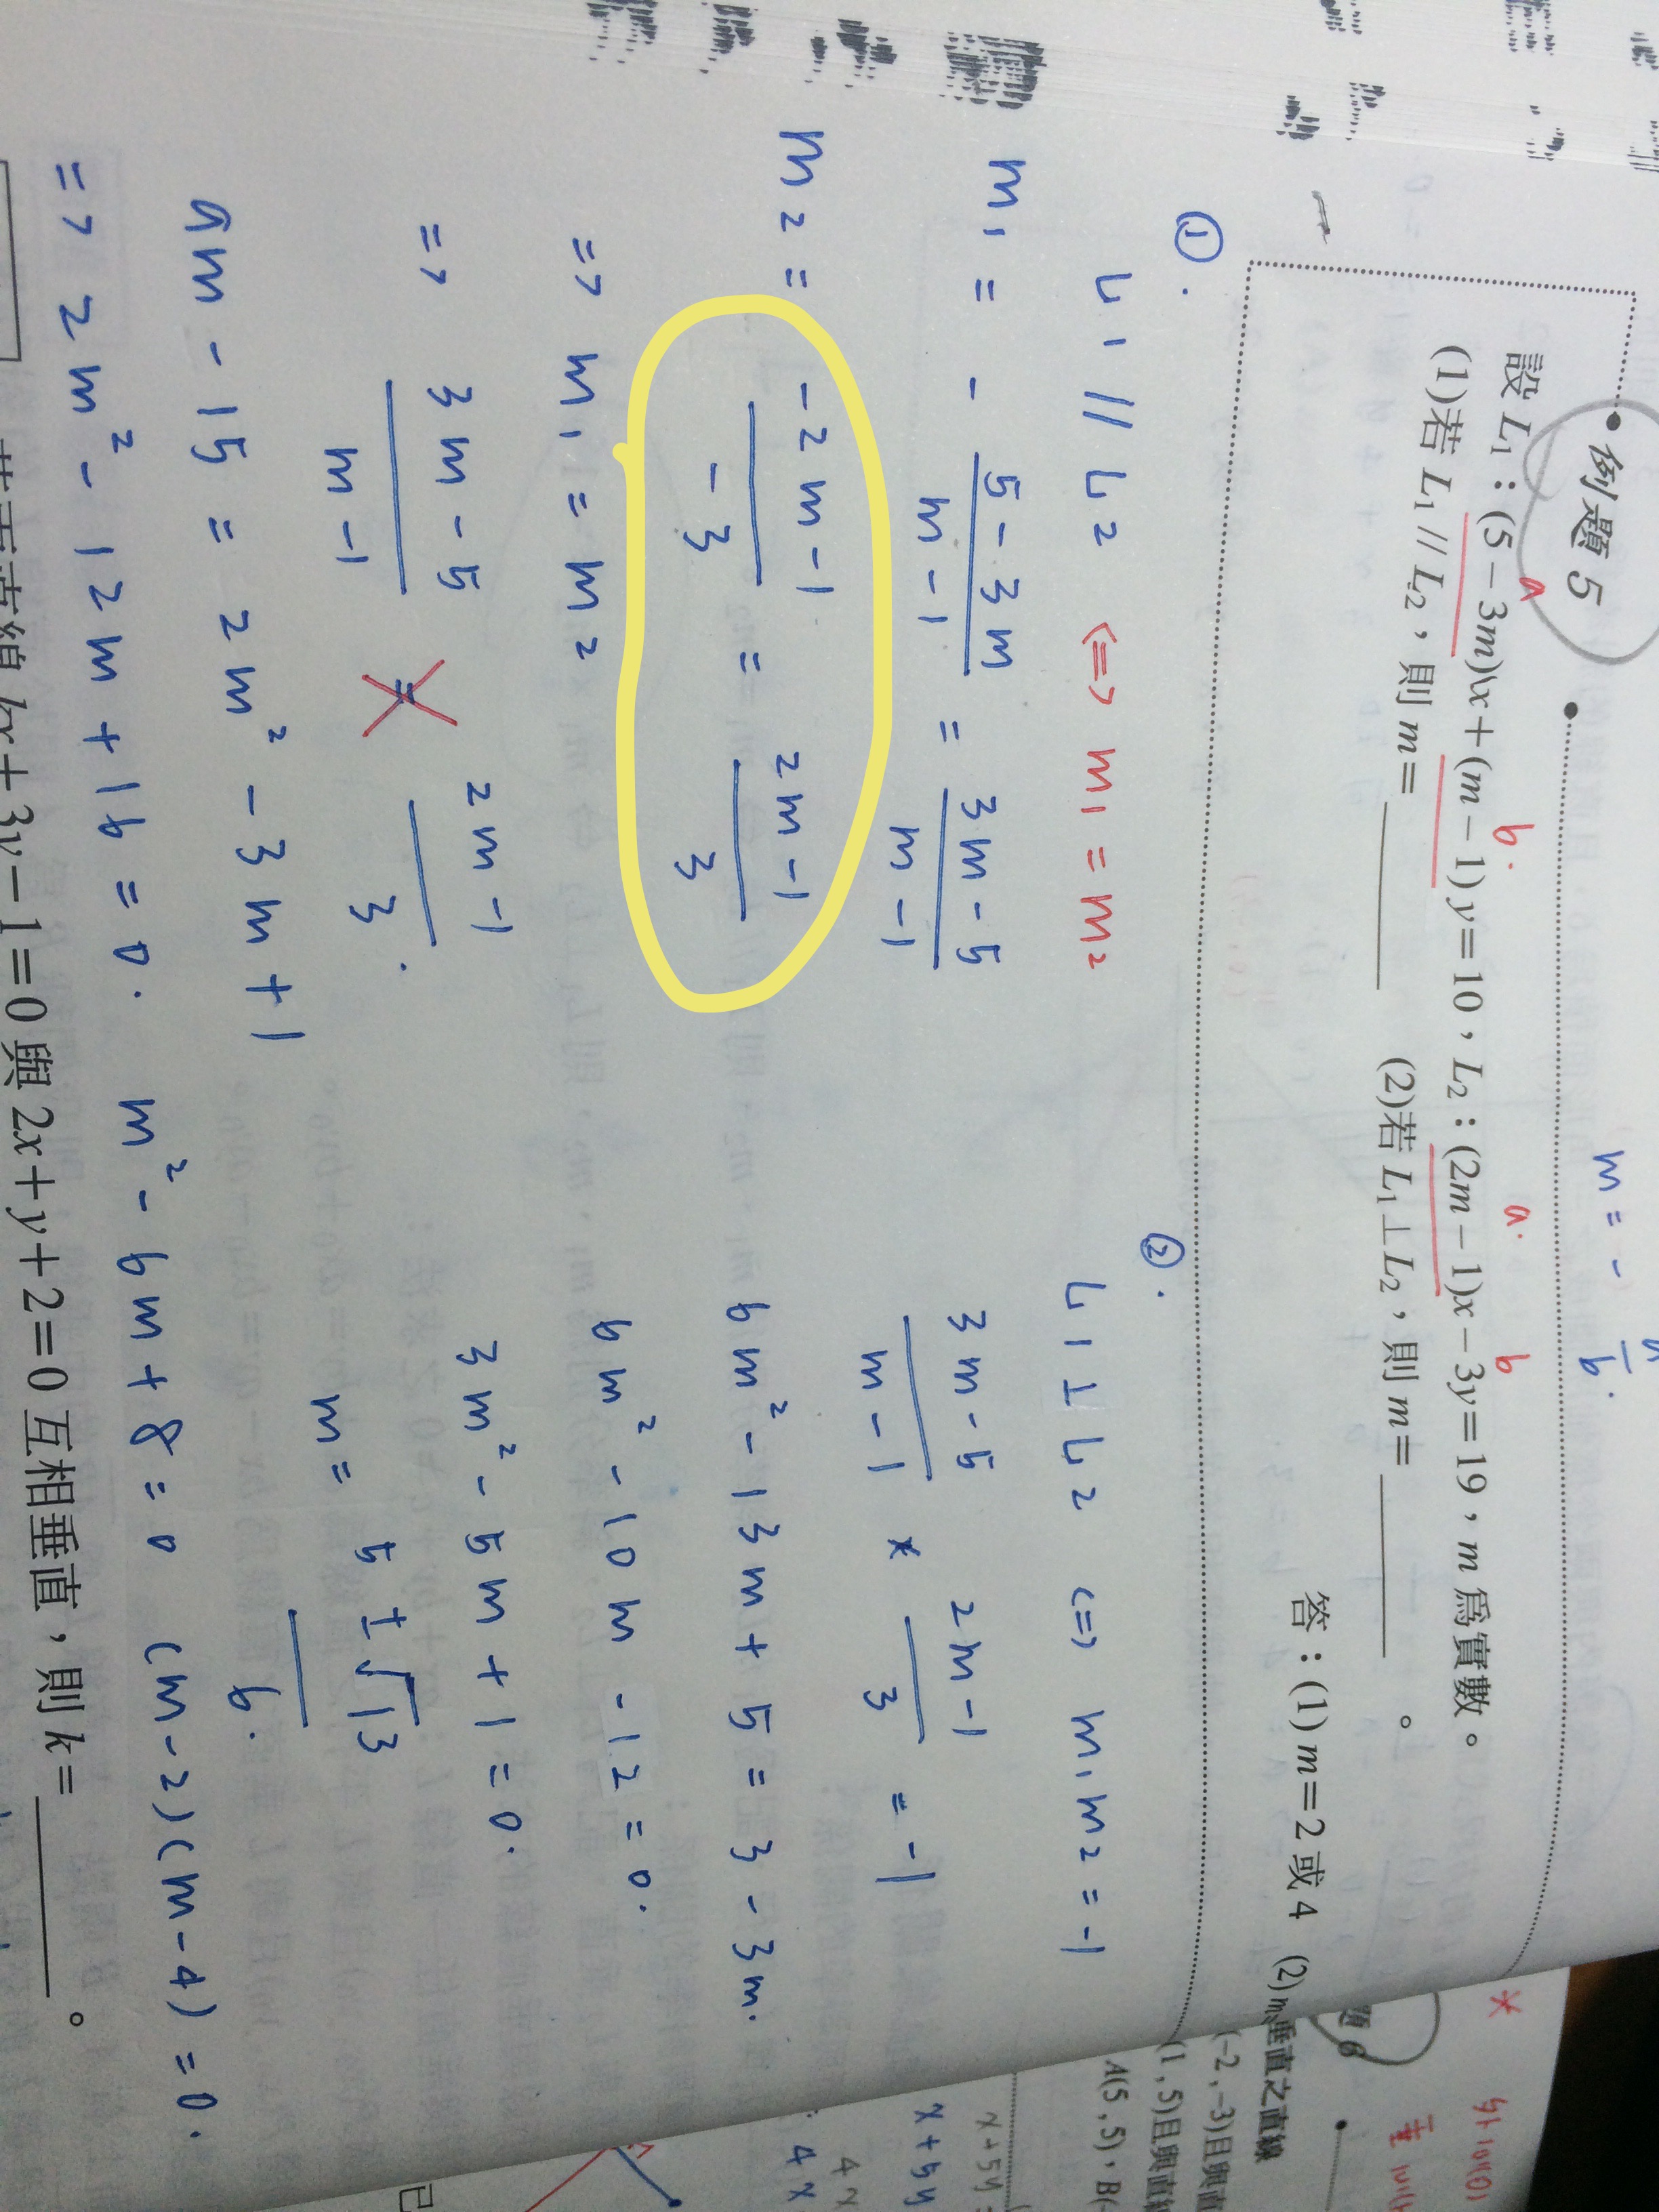 m = - a/b.
• 例題 5 •
設 L₁：(5－3m)x＋(m－1)y＝10，L₂：(2m－1)x－3y＝19，m 爲實數。
a b. a. b
(1)若 L₁ // L₂，則 m＝________ (2)若 L₁⊥L₂，則 m＝________。
答：(1) m＝2 或 4 (2)
①.
L1 // L2 <=> m1 = m2
m1 = - (5-3m)/(m-1) = (3m-5)/(m-1)
m2 = -(2m-1)/(-3) = (2m-1)/3
=> m1 = m2
=> (3m-5)/(m-1) = (2m-1)/3.
9m - 15 = 2m² - 3m + 1
=> 2m² - 12m + 16 = 0. m² - 6m + 8 = 0 (m-2)(m-4) = 0.
②.
L1 ⊥ L2 <=> m1m2 = -1
(3m-5)/(m-1) * (2m-1)/3 = -1
6m² - 13m + 5 = 3 - 3m.
6m² - 10m - 12 = 0.
3m² - 5m + 1 = 0.
m = (5 ± √13)/6.
kx＋3y－1＝0 與 2x＋y＋2＝0 互相垂直，則 k＝________。
題 6
垂直之直線
(-2,-3)且與直
(1,5)且與直線
A(5,5)，B(-
x+5y
x+5y
4x
4x